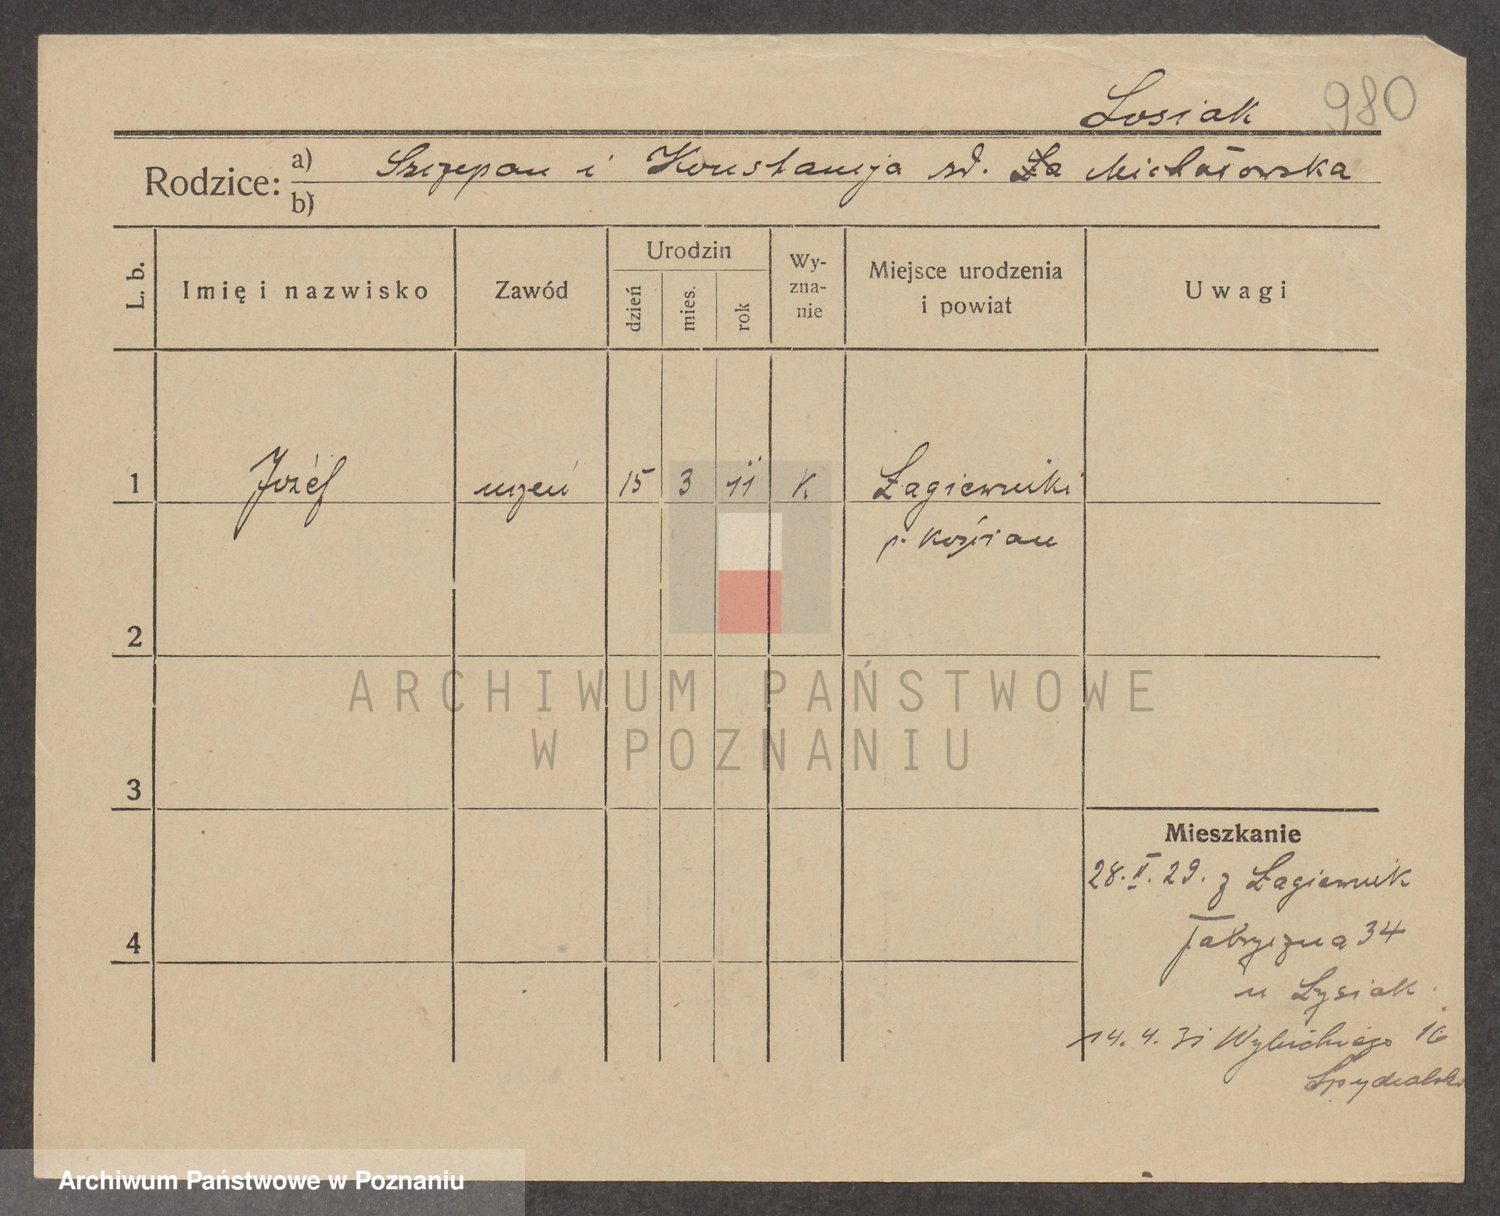 Losiak 980
Rodzice: a) Szczepan i Konstancja zd. Michałowska
b)
L. b. Imię i nazwisko Zawód Urodzin dzień mies. rok Wy-zna-nie Miejsce urodzenia i powiat Uwagi
1 Józef uczeń 15 3 11 K Łagiewniki
p. Kościan
2
ARCHIWUM PAŃSTWOWE
W POZNANIU
3
Mieszkanie
28. II. 29. z Łagiewnik
4
Fabryczna 34
u Łysiak.
14. 4. 31 Wybickiego 16
Archiwum Państwowe w Poznaniu